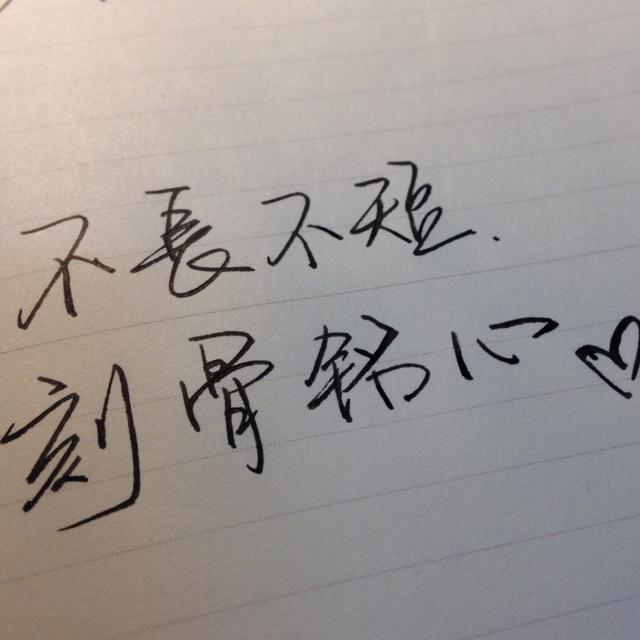 不長不短.
刻骨铭心♡